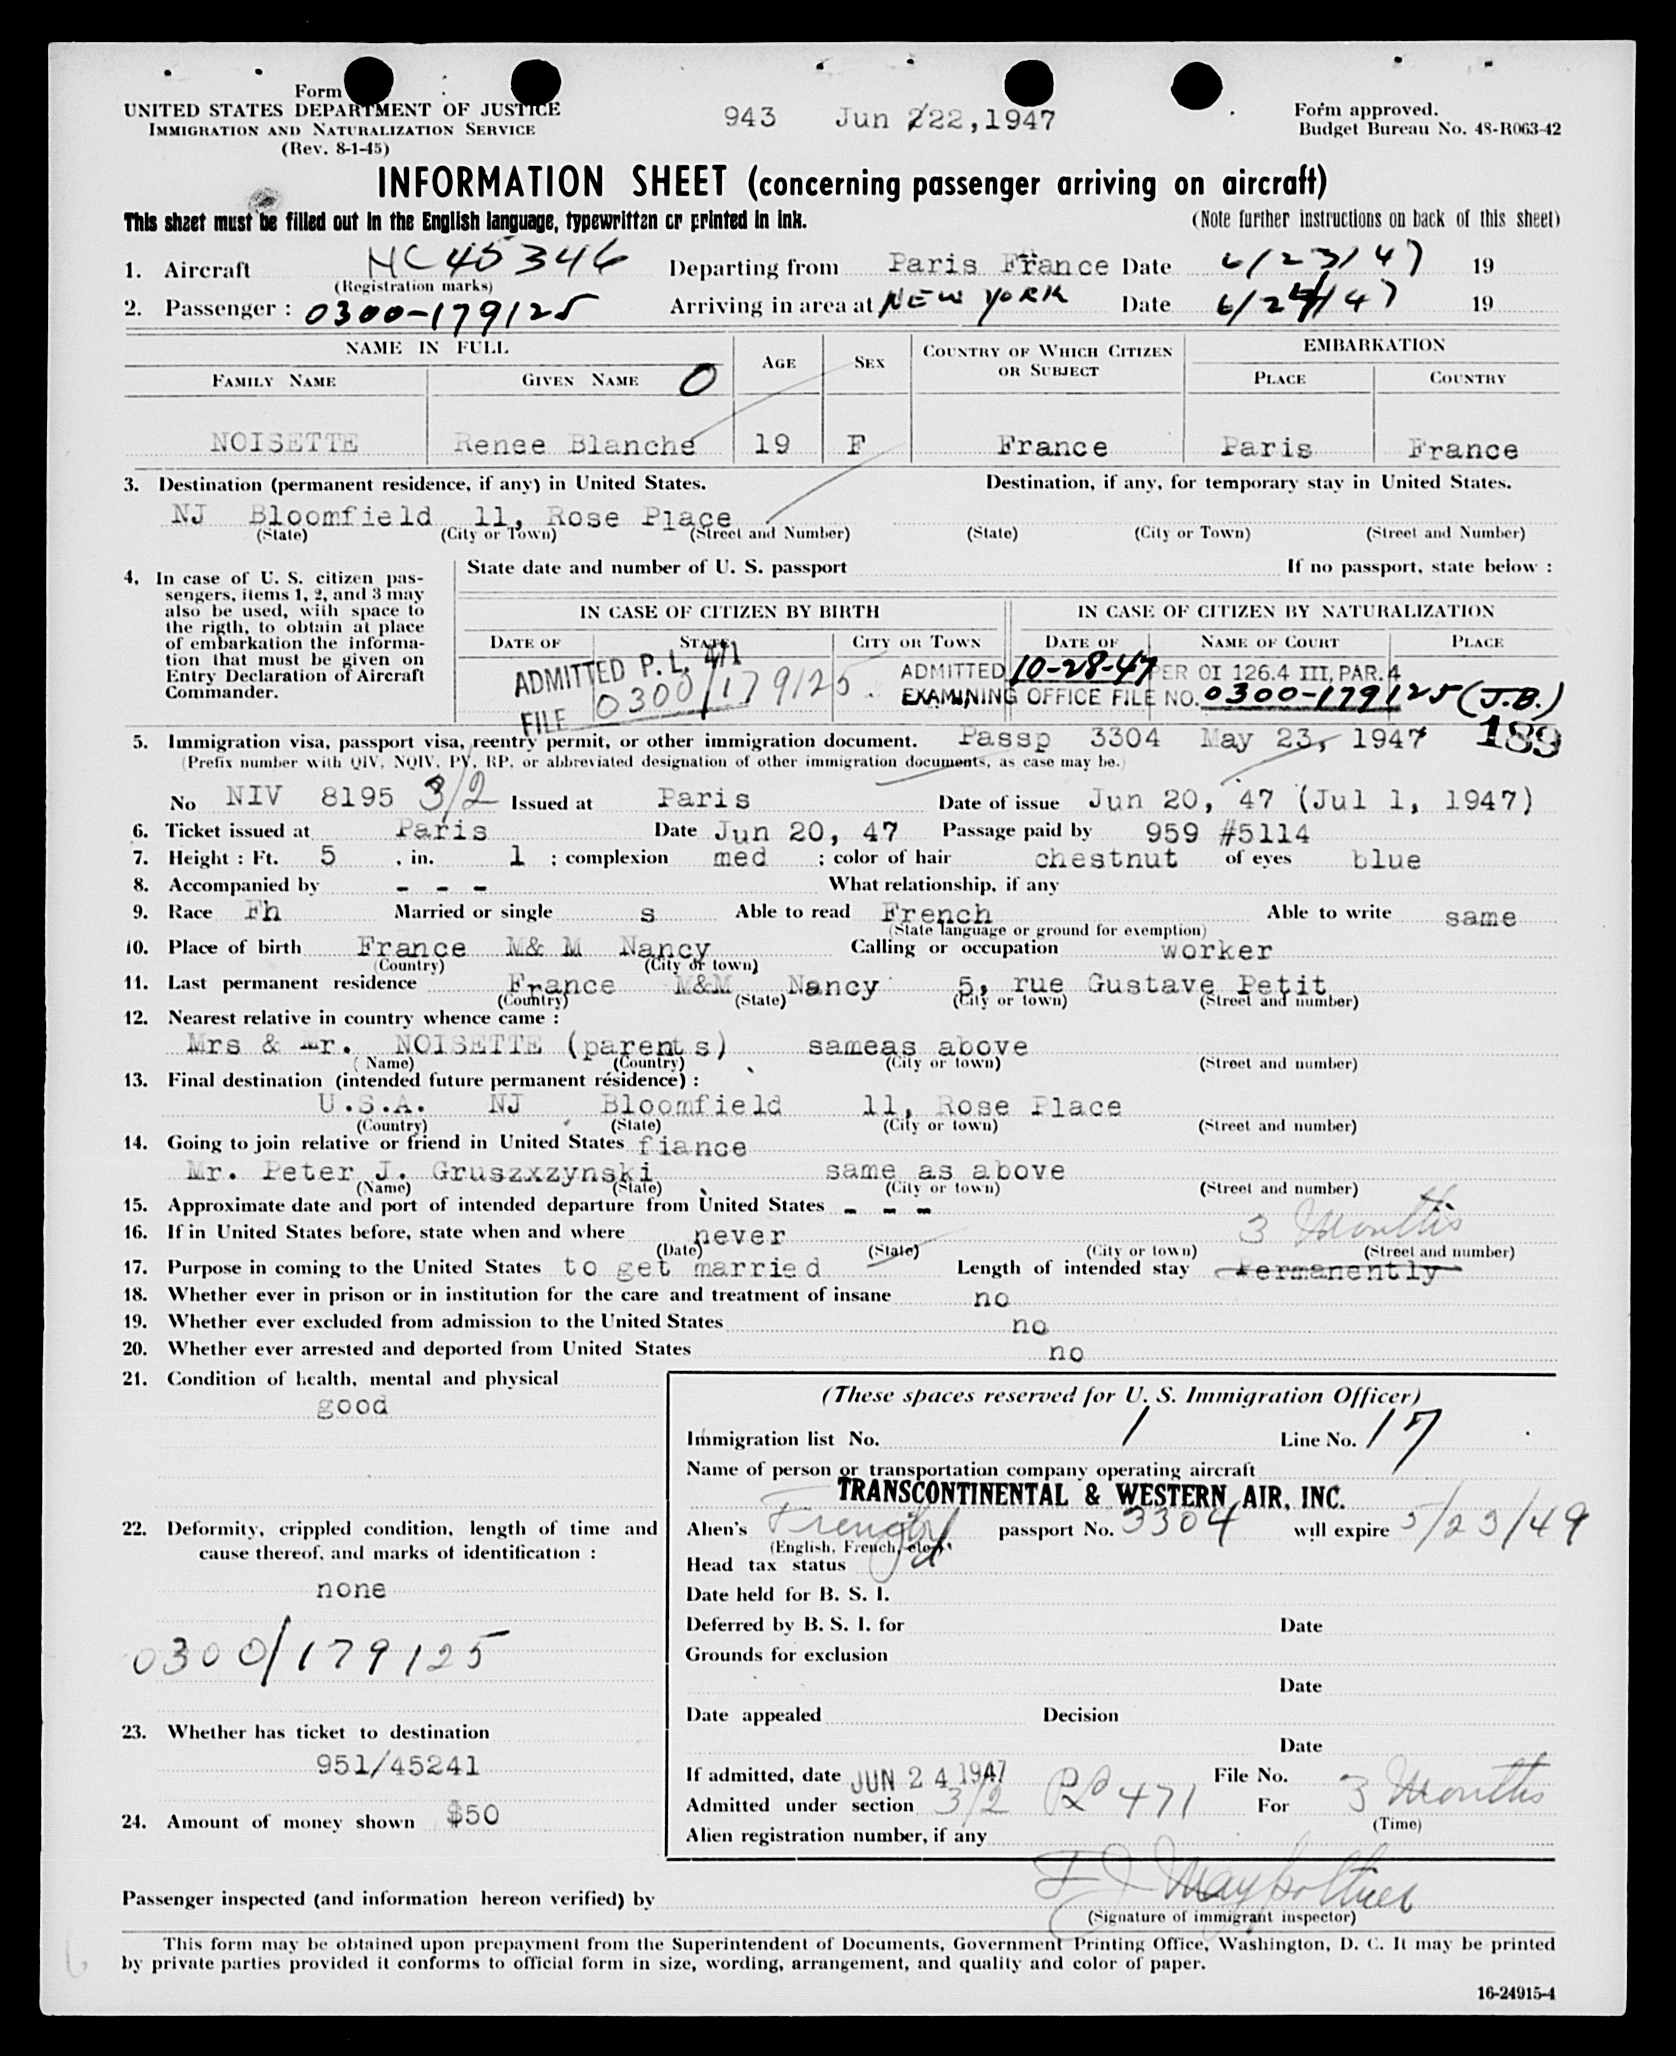 Form
UNITED STATES DEPARTMENT OF JUSTICE
IMMIGRATION AND NATURALIZATION SERVICE
(Rev. 8-1-45)
943 Jun 222,1947
Form approved.
Budget Bureau No. 43-R063-42
INFORMATION SHEET (concerning passenger arriving on aircraft)
This sheet must be filled out in the English language, typewritten or printed in ink.
(Note further instructions on back of this sheet)
1. Aircraft NC 45346 Departing from Paris France Date 6/23/47 19
(Registration marks)
2. Passenger : 0300-179125 Arriving in area at NEW YORK Date 6/24/47 19
NAME IN FULL AGE SEX COUNTRY OF WHICH CITIZEN OR SUBJECT EMBARKATION
FAMILY NAME GIVEN NAME O PLACE COUNTRY
NOISETTE Renee Blanche 19 F France Paris France
3. Destination (permanent residence, if any) in United States. Destination, if any, for temporary stay in United States.
NJ Bloomfield 11, Rose Place
(State) (City or Town) (Street and Number) (State) (City or Town) (Street and Number)
4. In case of U. S. citizen pas-
sengers, items 1, 2, and 3 may
also be used, with space to
the rigth, to obtain at place
of embarkation the informa-
tion that must be given on
Entry Declaration of Aircraft
Commander.
State date and number of U. S. passport If no passport, state below :
IN CASE OF CITIZEN BY BIRTH IN CASE OF CITIZEN BY NATURALIZATION
DATE OF STATE CITY OR TOWN DATE OF NAME OF COURT PLACE
ADMITTED P. L. 471
FILE 0300/179125
ADMITTED 10-28-47 PER OI 126.4 III, PAR. 4
EXAMINING OFFICE FILE NO. 0300-179125 (J.B.)
189
5. Immigration visa, passport visa, reentry permit, or other immigration document. Passp 3304 May 23, 1947
(Prefix number with QIV, NQIV, PV, RP, or abbreviated designation of other immigration documents, as case may be.)
No NIV 8195 3/2 Issued at Paris Date of issue Jun 20, 47 (Jul 1, 1947)
6. Ticket issued at Paris Date Jun 20, 47 Passage paid by 959 #5114
7. Height : Ft. 5 , in. 1 ; complexion med ; color of hair chestnut of eyes blue
8. Accompanied by - - - What relationship, if any
9. Race Fh Married or single s Able to read French Able to write same
(State language or ground for exemption)
10. Place of birth France M& M Nancy Calling or occupation worker
(Country) (City or town)
11. Last permanent residence France M&M Nancy 5, rue Gustave Petit
(Country) (State) (City or town) (Street and number)
12. Nearest relative in country whence came :
Mrs & Mr. NOISETTE (parents) sameas above
(Name) (Country) (City or town) (Street and number)
13. Final destination (intended future permanent résidence) :
U.S.A. NJ Bloomfield 11, Rose Place
(Country) (State) (City or town) (Street and number)
14. Going to join relative or friend in United States fiance
Mr. Peter J. Gruszxzynski same as above
(Name) (State) (City or town) (Street and number)
15. Approximate date and port of intended departure from United States - - -
16. If in United States before, state when and where never 3 Months
(Date) (State) (City or town) (Street and number)
17. Purpose in coming to the United States to get married Length of intended stay Permanently
18. Whether ever in prison or in institution for the care and treatment of insane no
19. Whether ever excluded from admission to the United States no
20. Whether ever arrested and deported from United States no
21. Condition of health, mental and physical
good
22. Deformity, crippled condition, length of time and
cause thereof, and marks of identification :
none
0300/179125
23. Whether has ticket to destination
951/45241
24. Amount of money shown $50
(These spaces reserved for U. S. Immigration Officer)
Immigration list No. 1 Line No. 17
Name of person or transportation company operating aircraft
TRANSCONTINENTAL & WESTERN AIR, INC.
Alien's French passport No. 3304 will expire 5/23/49
(English, French, etc.)
Head tax status
Date held for B. S. I.
Deferred by B. S. I. for Date
Grounds for exclusion
Date
Date appealed Decision
Date
If admitted, date JUN 24 1947 File No.
Admitted under section 3/2 PL 471 For 3 Months
(Time)
Alien registration number, if any
Passenger inspected (and information hereon verified) by
(Signature of immigrant inspector)
This form may be obtained upon prepayment from the Superintendent of Documents, Government Printing Office, Washington, D. C. It may be printed
by private parties provided it conforms to official form in size, wording, arrangement, and quality and color of paper.
16-24915-4